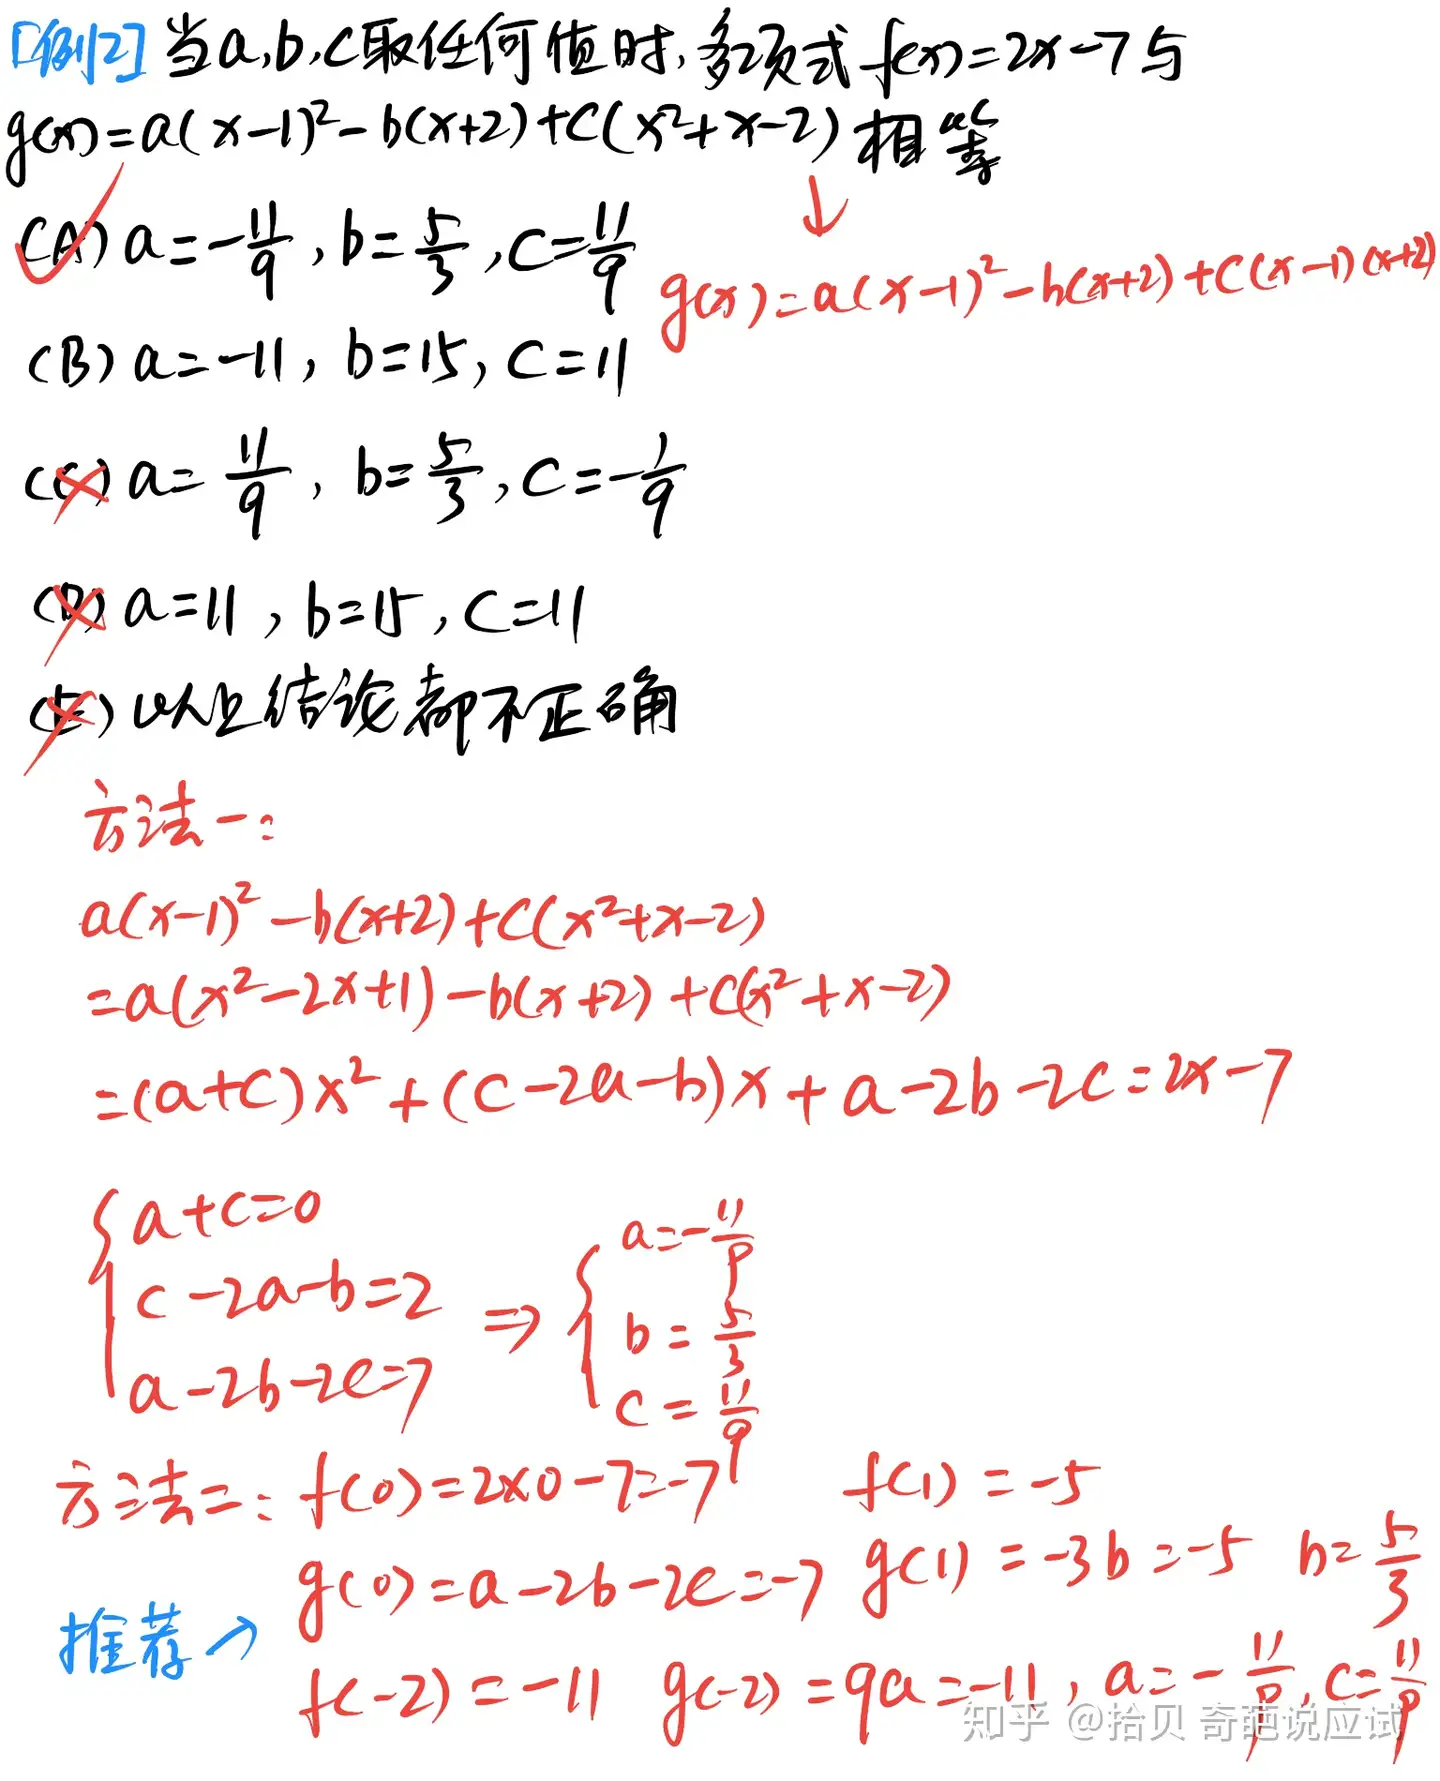 [例2] 当a,b,c取任何值时,多项式f(x)=2x-7与
g(x)=a(x-1)²-b(x+2)+c(x²+x-2)相等
(A) a=-11/9, b=5/3, c=11/9
g(x)=a(x-1)²-b(x+2)+c(x-1)(x+2)
(B) a=-11, b=15, c=11
(C) a=11/9, b=5/3, c=-1/9
(D) a=11, b=15, c=11
(E) 以上结论都不正确
方法一:
a(x-1)²-b(x+2)+c(x²+x-2)
=a(x²-2x+1)-b(x+2)+c(x²+x-2)
=(a+c)x²+(c-2a-b)x+a-2b-2c=2x-7
a+c=0
c-2a-b=2
a-2b-2c=7
⇒
a=-11/9
b=5/3
c=11/9
方法二: f(0)=2×0-7=-7 f(1)=-5
g(0)=a-2b-2c=-7 g(1)=-3b=-5 b=5/3
推荐→
f(-2)=-11 g(-2)=9a=-11, a=-11/9, c=11/9
知乎 @拾贝 奇葩说应试